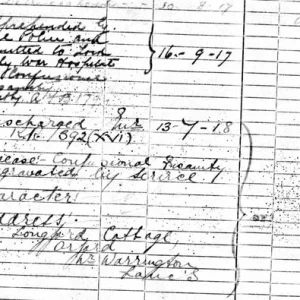 10 . 8 . 17
prehended by
e Police and
mitted to Lord
by War Hospital
Confusional
16 - 9 - 17
ischarged
K.R. 392 (XVI) 13-7-18
ease - Confusional Insanity
gravated by service
aracter:
ddress:
Longford Cottage,
Orford
Nr Warrington
Lanc's